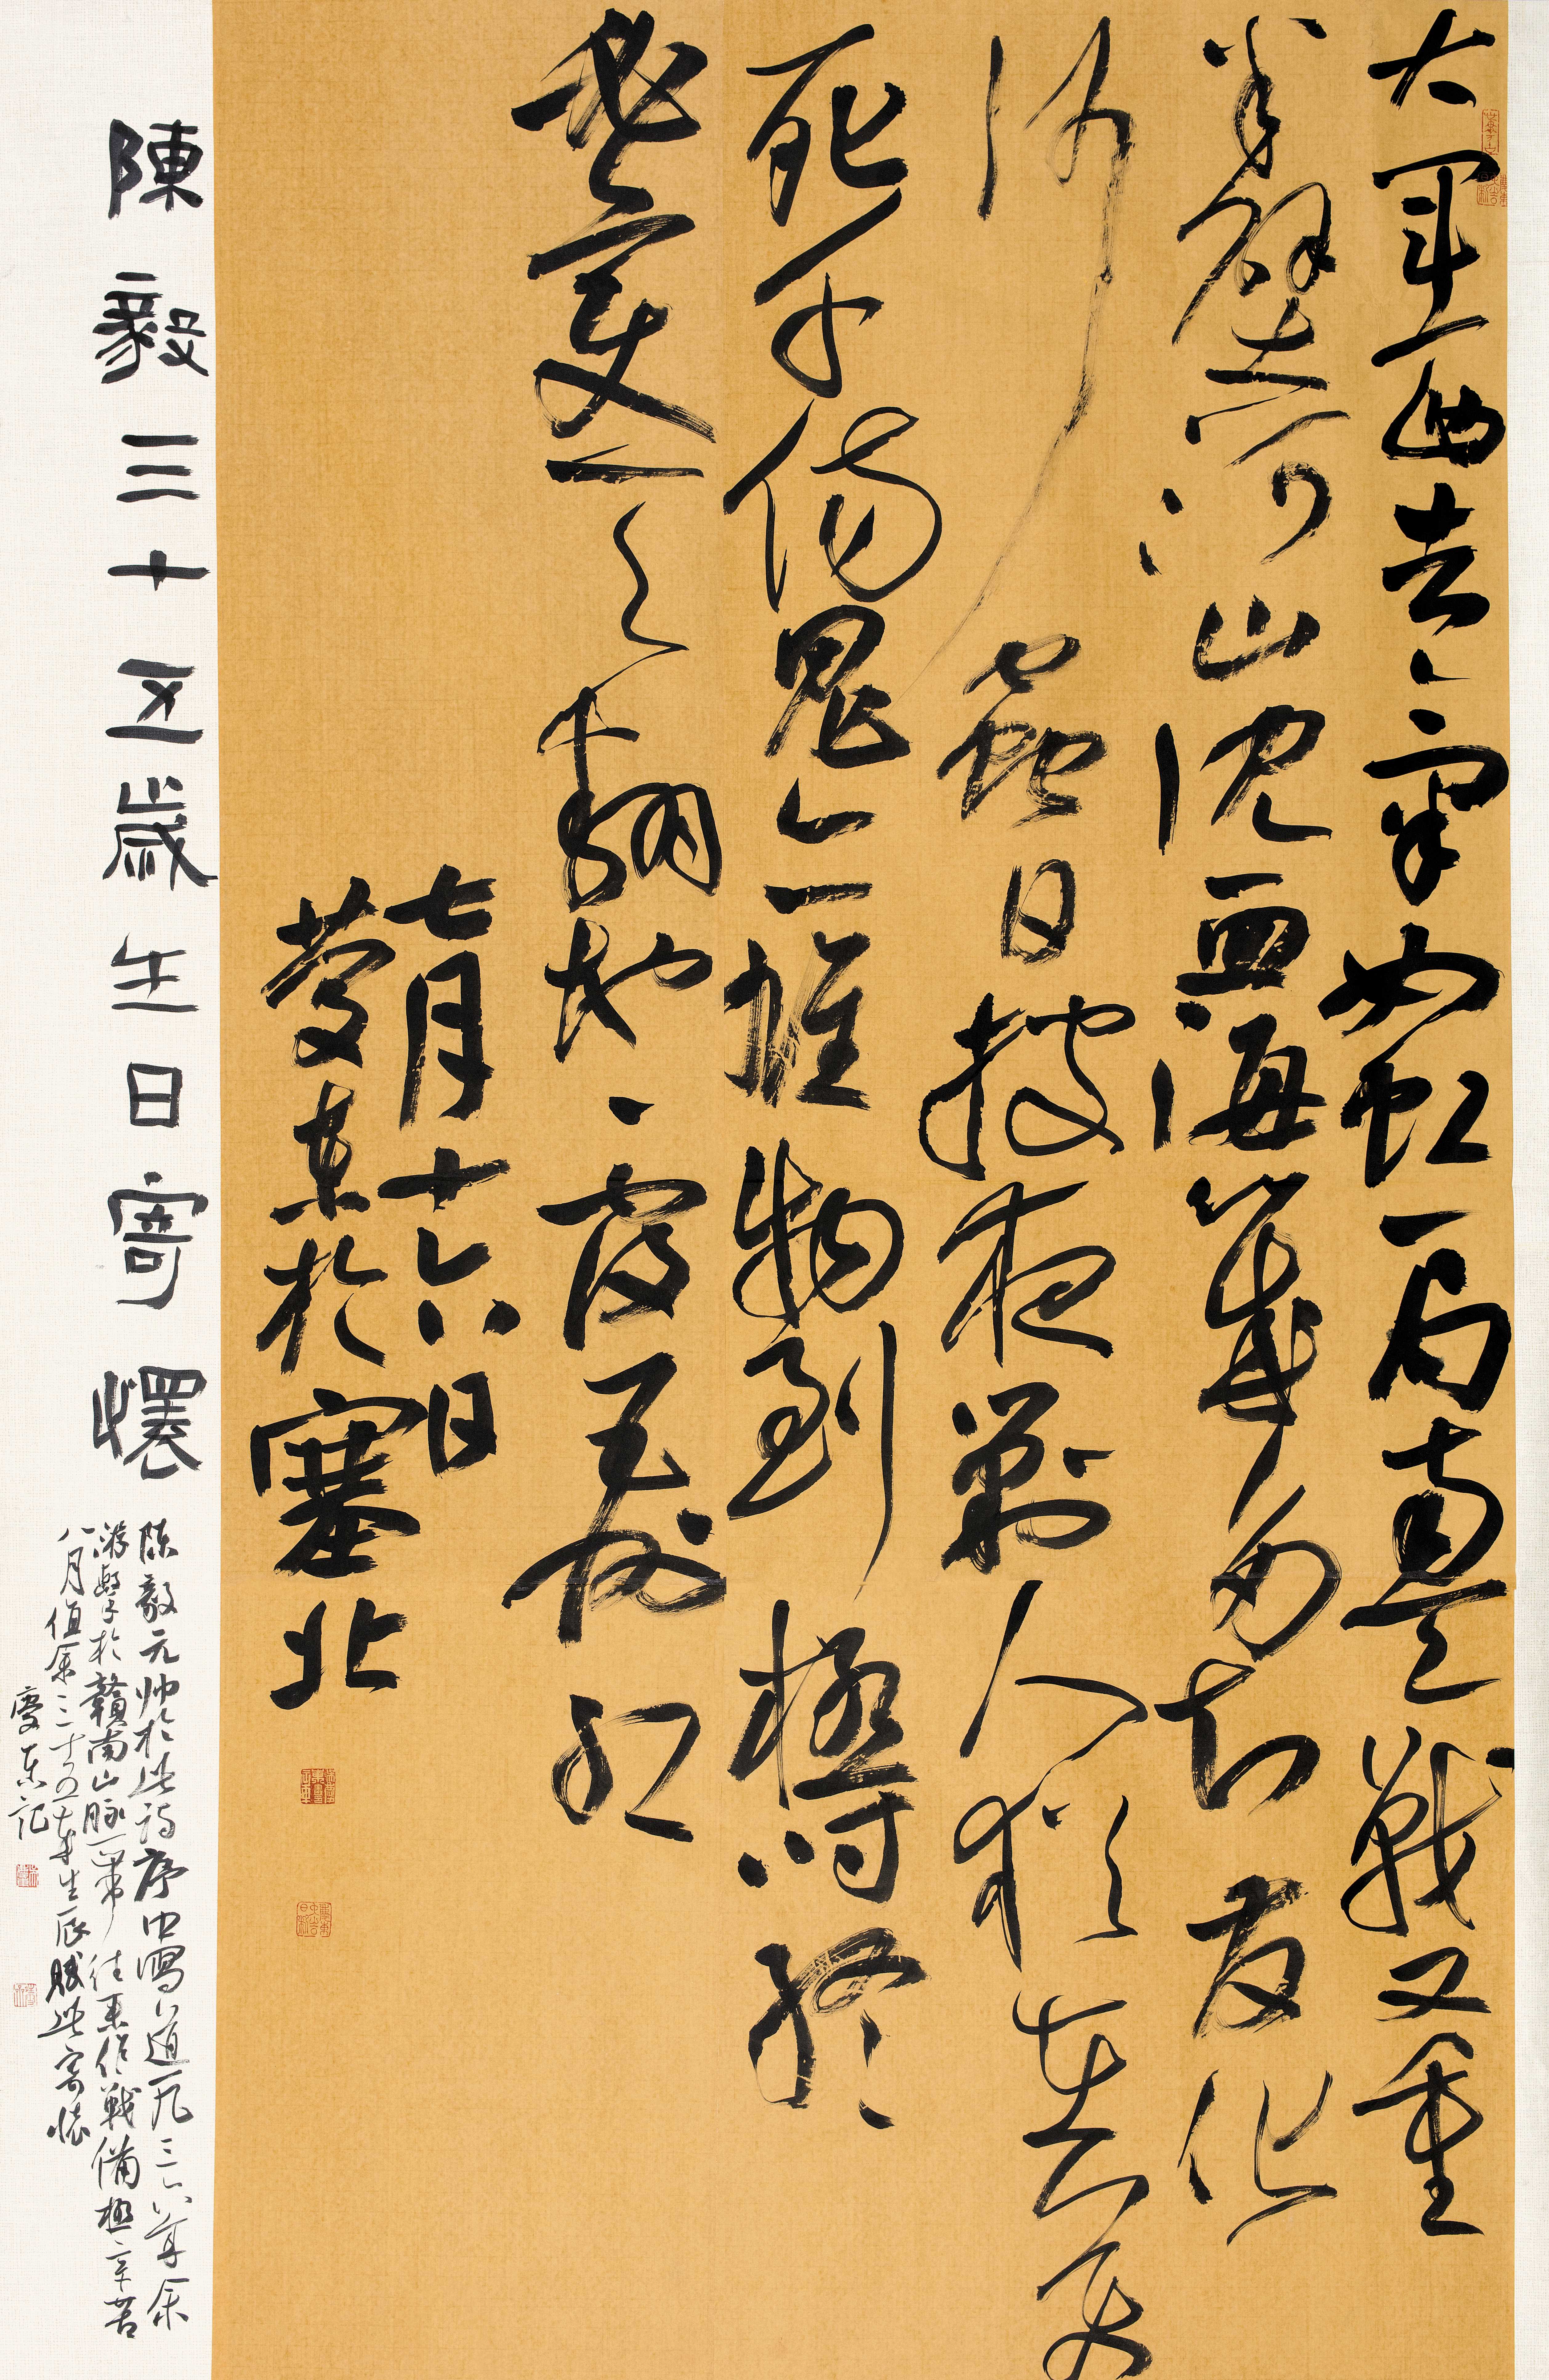 大軍西去氣如虹一局南天戰又重
半壁河山沈血海幾多知友化
沙蟲日搜夜剿人猶在萬
死千傷鬼亦雄物到極時終
必變天翻地覆五洲紅
七月十六日
慶東於塞北
陳毅三十五歲生日寄懷
陳毅元帥於此詩序中寫道一九三六年余
游擊於贛南山脈一帶往來作戰備極辛苦
八月值余三十五年生辰賦此寄懷
慶東記